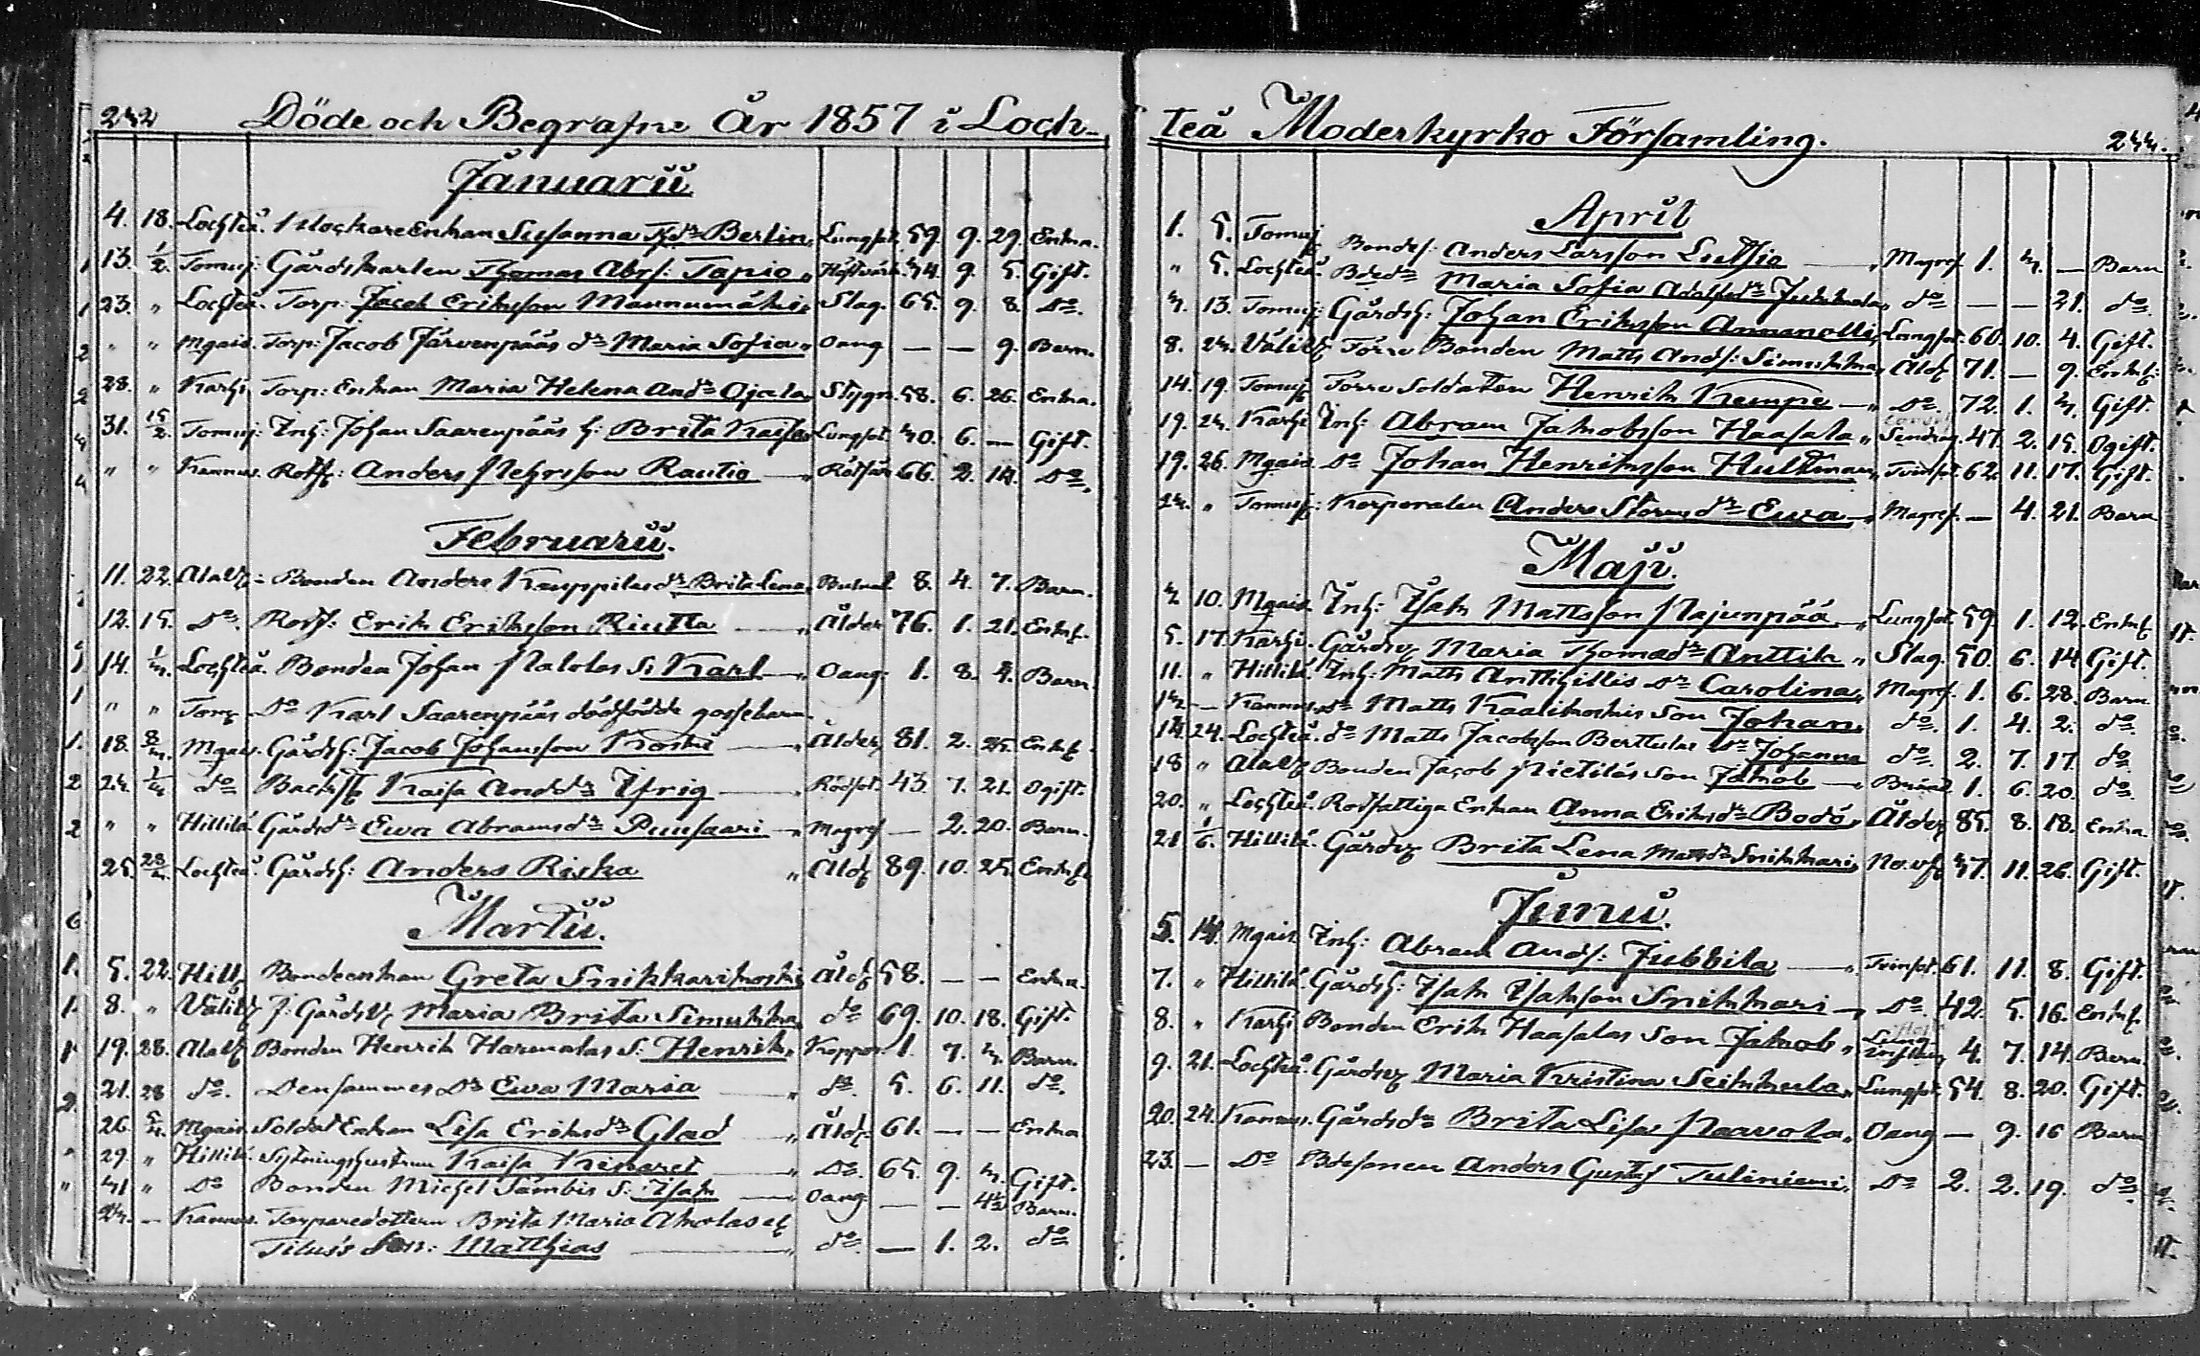 242 Döde och Begrafne År 1857 i Loch-
Januarii
4. 18. Lochteå. Klockare Enkan Susanna Berlin Lungsot. 59. 9. 29. Enka.
13. 1/2. Tomuj. Gårdskarlen Thomas Abrs: Tapio 9. 5. Gift.
23. " Lochteå. Torp: Jacob Eriksson Mannumäki Slag. 65. 9. 8. Do.
" " Mgais. Torp: Jacob Järvenpääs dr Maria Sofia " Oang — — 9. Barn.
28. " Karhi Torp: Enkan Maria Helena Andr Ojala Stygn. 58. 6. 26. Enka.
31. 15/2. Tomuj: Inh: Johan Saarenpääs h: Brita Kaisa Lungsot. 40. 6. — Gift.
" " Kannus. Anders Rautio — Rötfeb 66. 2. 14. Do.
Februarii.
11. 22. Alav: Bonden Anders Kauppilas dr Brita Lena 8. 4. 7. Barn.
12. 15. Do. Erik Eriksson Riutta — " Ålder 76. 1. 21. Enkf.
14. 1/4. Lochteå. Bonden Johan Natolas S: Karl — " Oang. 1. 8. 4. Barn.
" " Do Karl Saarenpääs dödfödde gossebarn.
18. 8/4. Mgais. Gårdsh: Jacob Johansson Koski — " Ålder 81. 2. 25. Enkf.
24. 1/4 do Kaisa Andrsdr Ifrig — Rödsot. 43. 7. 21. Ogift.
" " Hillilä Gårdsdr Ewa Abramsdr Puusaari — " Magref — 2. 20. Barn.
25. Lochteå. Gårdsh: Anders Riska " Åld 89. 10. 25. Enkf.
Martii.
5. 22. Hill Bondeenkan Greta Snikkarikoski Åld 58. — — Enka.
8. " Välik F. Gårds Maria Brita Simukka do 69. 10. 18. Gift.
19. 28. Alav Bonden Henrik Harmalas S: Henrik " Koppor. 1. 7. 4. Barn.
21. 28 do. Densammes Dr Ewa Maria — " do. 5. 6. 11. do.
26. 5/4. Mgais. Soldat Enkan Lisa Eriksdr Glad — " Åld: 61. — — Enka
29. " Hillilä Sytningshustrun Kaisa Kinaret — " Do. 65. 9. 4. Gift.
" Do Bonden Michel Sämbis S: Isak — " Oang — — Barn.
24. — Kannus. Torparedottern Brita Maria Aholas
Son: Matthias — " do. — 1. 2. do
teå Moderkyrko Församling. 244.
April
1. 5. Tomuj Bondes: Anders Larsson Lutsio — " Magref. 1. 4. — Barn
" 5. Lochteå. Maria Sofia Adolfsdr Jukkola " do — — 21. do.
4. 13. Tomuj: Gårdsh: Johan Eriksson Annanolli Lungsot. 60. 10. 4. Gift.
8. 24. Välik Förre Bonden Matts Ands: Simukka Åld 71. — 9. Enkf:
14. 19. Tomuj Förre Soldaten Henrik Kempe — " Do. 72. 1. 4. Gift.
19. 24. Karhi Inh: Abram Jakobsson Haasala " 47. 2. 15. Ogift.
19. 26. Mgais. Do Johan Henriksson Hultman " Tvinsot. 62. 11. 17. Gift.
24. " Tomuj: Korporalen Anders Storms dr Ewa — " Magref. — 4. 21. Barn
Maji.
4. 10. Mgais. Inh: Isak Mattsson Majunpää — " Lungsot. 59. 1. 12. Enkf
5. 17. Karhi. Maria Thomædr Anttik " Slag. 50. 6. 14. Gift.
11. " Hillilä. Inh: Matts Anttigillis Dr Carolina " Magref. 1. 6. 28. Barn
14 — Kannus. Do Matts Kaalikoskis Son Johan " do. 1. 4. 2. do.
14. 24. Lochteå. do Matts Jacobsson Berttulas Dr Johanna do. 2. 7. 17. do
18 " Alav Bonden Jacob Pietiläs Son Jakob — " 1. 6. 20. do.
20. " Lochteå. Rotfattiga Enkan Anna Eriksdr Bodö " Ålder 85. 8. 18. Enka
21 1/6. Hillilä. Brita Lena Mattsdr Snikkari 47. 11. 26. Gift.
Junii.
5. 14. Mgais. Inh: Abram Ands: Jubbila — " Tvinsot. 61. 11. 8. Gift.
7. " Hillilä. Gårdsh: Isak Isaksson Snikkari — " Do. 42. 5. 16. Enkf.
8. " Karhi Bonden Erik Haasalas Son Jakob " 4. 7. 14. Barn.
9. 21. Lochteå. Maria Kristina Seikkula " Lungsot. 54. 8. 20. Gift.
20. 24. Kannus. Gårdsdr Brita Lisa Naavola " Oang — 9. 16 Barn
23. — Do Bdesonen Anders Gustaf Tuliniemi " Do 2. 2. 19. do.